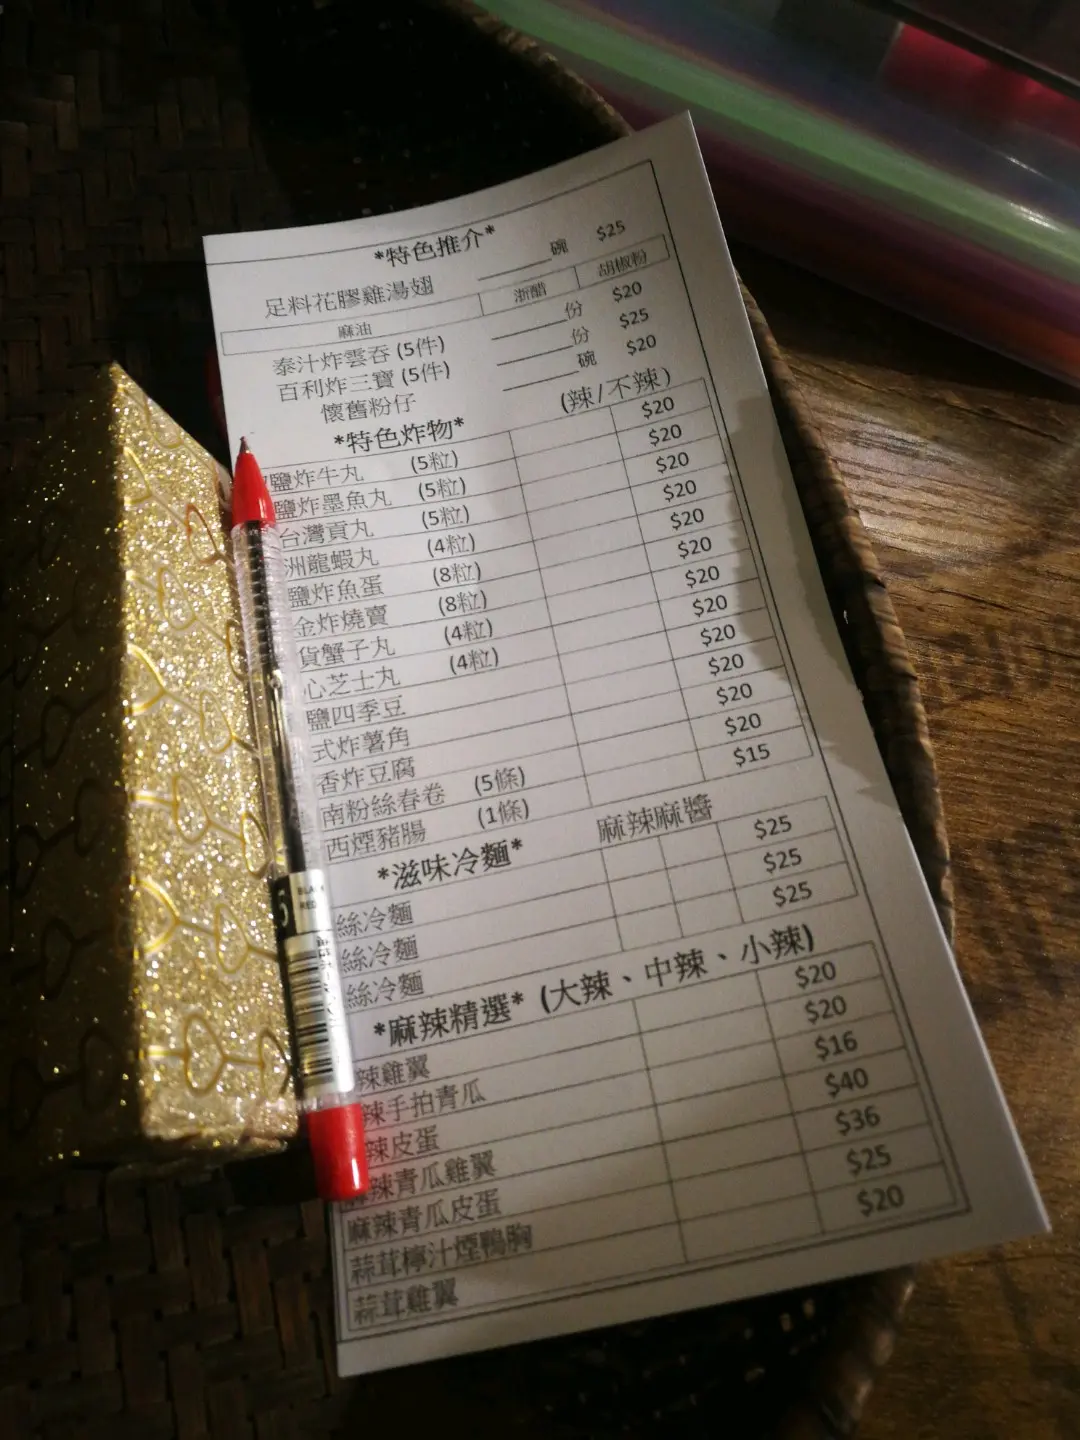 *特色推介*
足料花膠雞湯翅 ______碗 $25
麻油 浙醋 胡椒粉
泰汁炸雲吞 (5件) ______份 $20
百利炸三寶 (5件) ______份 $25
懷舊粉仔 ______碗 $20
*特色炸物* (辣/不辣)
鹽炸牛丸 (5粒) $20
鹽炸墨魚丸 (5粒) $20
台灣貢丸 (5粒) $20
洲龍蝦丸 (4粒) $20
鹽炸魚蛋 (8粒) $20
金炸燒賣 (8粒) $20
貨蟹子丸 (4粒) $20
心芝士丸 (4粒) $20
鹽四季豆 $20
式炸薯角 $20
香炸豆腐 $20
南粉絲春卷 (5條) $20
西煙豬腸 (1條) $15
*滋味冷麵* 麻辣麻醬
絲冷麵 $25
絲冷麵 $25
絲冷麵 $25
*麻辣精選* (大辣、中辣、小辣)
辣雞翼 $20
辣手拍青瓜 $20
辣皮蛋 $16
辣青瓜雞翼 $40
麻辣青瓜皮蛋 $36
蒜茸檸汁煙鴨胸 $25
蒜茸雞翼 $20